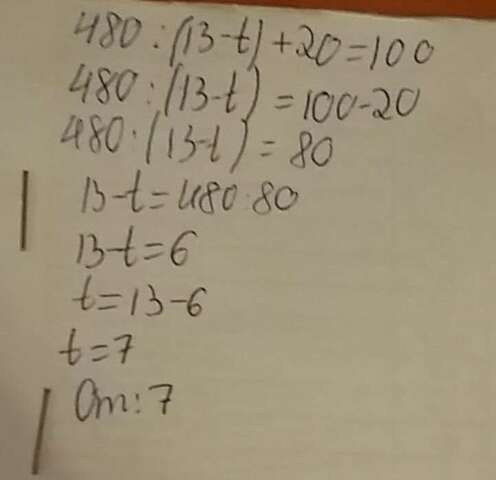 480:(13-t)+20=100
480:(13-t)=100-20
480:(13-t)=80
13-t=480:80
13-t=6
t=13-6
t=7
От:7